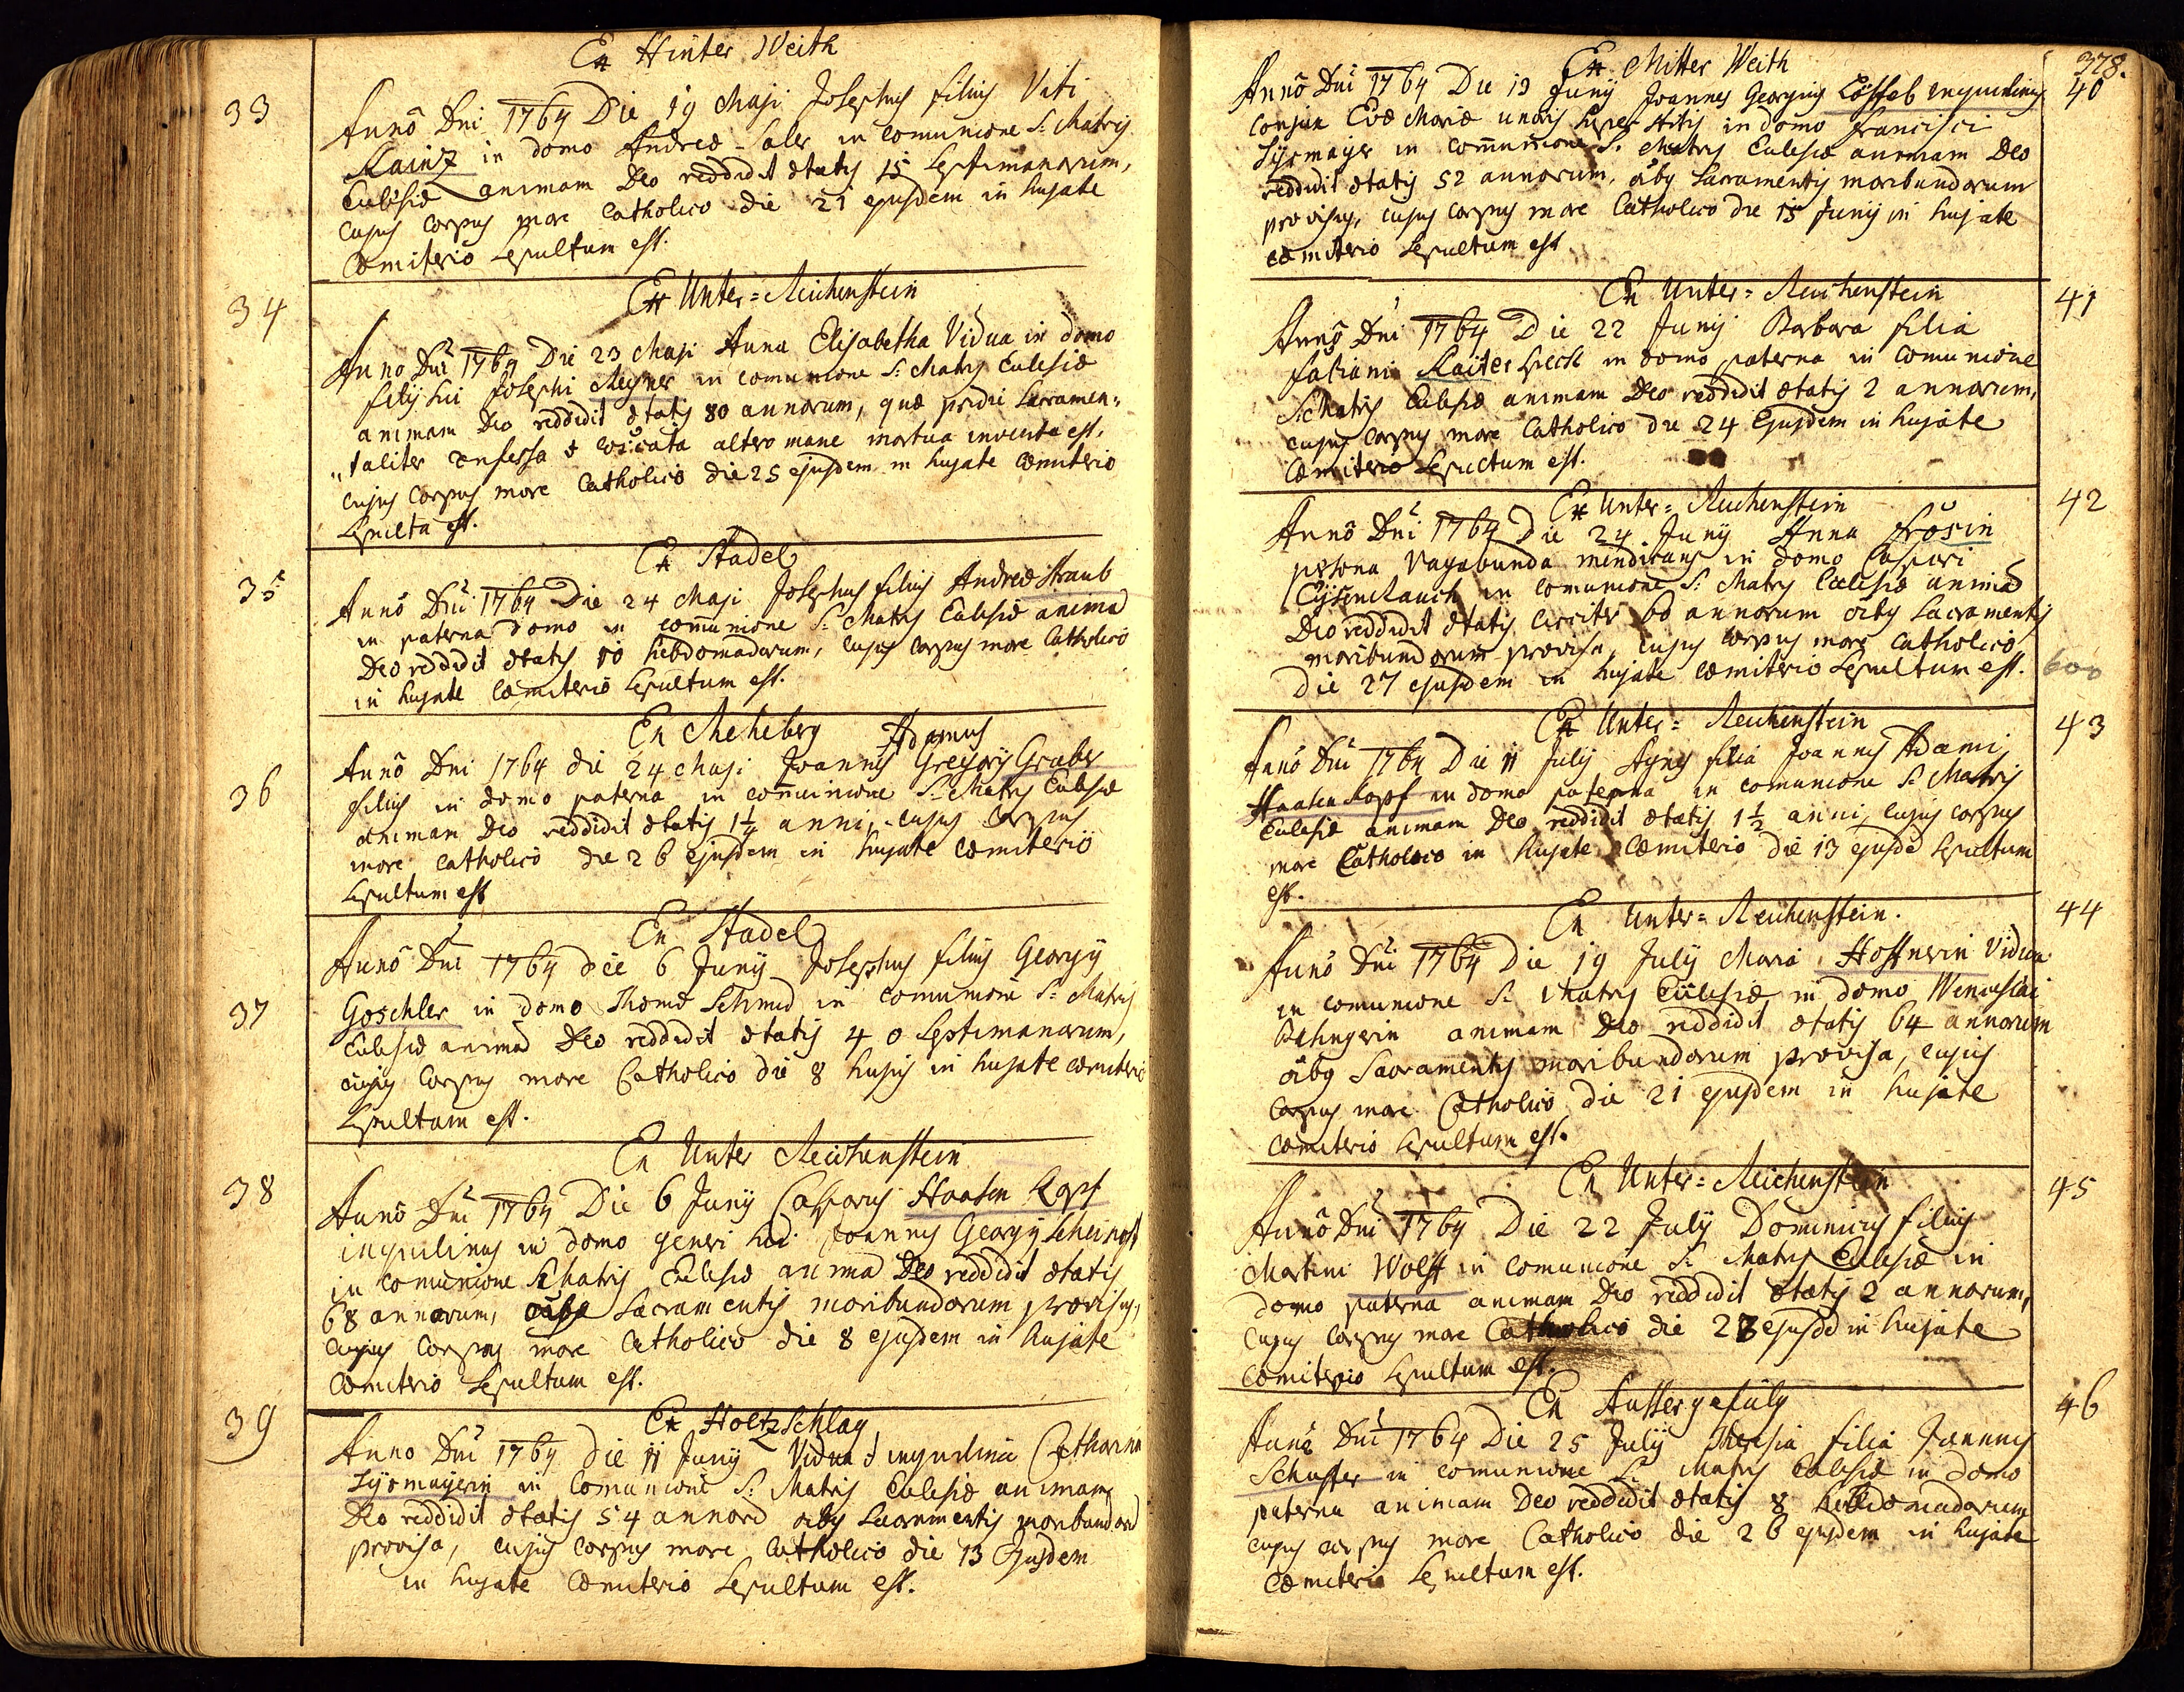 Ex Hinter Weith
33
Anno Dni 1764 Die 19 Maji Josephus filius Viti
Rainz in domo Andreæ Saler in comunione S: Matris
Eccłesiæ animam Deo reddidit ætatis 15 Septimanarum,
cujus corpus more Catholico die 21 ejusdem in hujate
Cœmiterio sepultum est.
34
Ex Unter=Reichenstein
Anno Dni 1764 Die 23 Maji Anna Elisabetha Vidua in domo
filij sui Josephi Meyner in comunione S: Matris Ecclesiæ
animam Deo reddidit ætatis 80 annorum, quæ pridie Sacramen=
"taliter confessa & altero mane mortua inventa est,
cujus corpus more Catholico die 25 ejusdem in hujate cœmiterio
sepulta est.
Ex Stadel
35
Anno Dni 1764 Die 24 Maji Josephus filius Andreæ Straub
in paterna domo in comunione S: Matris Ecclesiæ animã
Deo reddidit ætatis 10 hebdomadarum, cujus corpus more Catholico
in hujate cœmiterio sepultum est.
Ex Meheberg
Adamus
36
Anno Dni 1764 die 24 Maji Joannes Gregorij Gruber
filius in domo paterna in comunione S: Matris Ecclesiæ
animam Deo reddidit ætatis 1¼ anni, cujus corpus
more catholico die 26 ejusdem in hujate cœmiterio
sepultum est
Ex Stadel
37
Anno Dni 1764 die 6 Junij Josephus filius Georgij
Goschler in domo Thomæ Schmid in comunione S: Matris
Ecclesiæ animã Deo reddidit ætatis 40 Septimanarum,
cujus corpus more Catholico die 8 hujus in hujate cœmiterio
sepultum est.
Ex Unter Reichenstein
38
Anno Dni 1764 Die 6 Junij Casparus Haasen Kopf
inquilinus in domo generi sui Joannis Georgij
in comunione S: Matris Ecclesiæ animã Deo reddidit ætatis
68 annorum, oîbg Sacramentis moribundorum provisus,
cujus corpus more Catholico die 8 ejusdem in hujate
Cœmiterio sepultum est.
Ex Holtzschlag
39
Anno Dni 1764 die 11 Junij Vidua & inquilina Catharina
Sysmayerin in Comunione S: Matris Ecclesiæ animam
Deo reddidit ætatis 54 annorũ oîbg Sacramentis moribundorũ
provisa, cujus corpus more Catholico die 13 Ejusdem
in hujate Cœmiterio sepultum est.
378.
Ex Mitter Weith
40
Anno Dni 1764 Die 13 Junij Joannes Georgius Löffelb inquilinus
conjux Evæ Mariæ uxoris superstitis in domo Francisci
Sysmayer in comunione S. Matris Ecclesiæ animam Deo
reddidit ætatis 52 annorum, oîbg Sacramentis moribundorum
provisus, cujus corpus more Catholico die 15 Junij in hujate
cœmiterio sepultum est
Ex Unter=Reichenstein
41
Anno Dni 1764 Die 22 Junij Barbara filia
Fabiani in domo paterna in Comunione
S: Matris Ecclesiæ animam Deo reddidit ætatis 2 annorum,
cujus corpus more Catholico die 24 Ejusdem in hujate
Cœmiterio sepultum est.
Ex Unter=Reichenstein
42
Anno Dni 1764 Die 24 Junij Anna Frösin
persona Vagabunda mendicans in domo Caspari
Eysenrauch in comunione S: Matris Ecclesiæ animã
Deo reddidit ætatis circiter 60 annorum oîbg Sacramentis
moribundorum provisa, cujus corpus more Catholico
die 27 ejusdem in hujate cœmiterio sepultum est.
600
Ex Unter=Reichenstein
43
Anno Dni 1764 Die 11 Julij Agnes filia Joannis Adami
Haasen Kopf in domo paterna in comunione S: Matris
Ecclesiæ animam Deo reddidit ætatis 1½ anni, cujus corpus
more Catholico in hujate Cœmiterio die 13 ejusdẽ sepultum
est.
Ex Unter=Reichenstein.
44
Anno Dni 1764 Die 19 Julij Maria Hoffnerin Vidua
in comunione S: Matris Ecclesiæ in domo Wenceslai
animam Deo reddidit ætatis 64 annorum
oîbg Sacramentis moribundorum provisa, cujus
corpus more Catholico die 21 ejusdem in hujate
cœmiterio sepultum est.
Ex Unter=Reichenstein
45
Anno Dni 1764 Die 22 Julij Dominicus filius
Martini Wolff in Comunione S: Matris Ecclesiæ in
domo paterna animam Deo reddidit ætatis 2 annorum,
cujus corpus more Catholico die 23 ejusdẽ in hujate
Cœmiterio sepultum est.
Ex Aussergefüly
46
Anno Dni 1764 Die 25 Julij Theresia filia Joannis
Schuster in comunione S: Matris Ecclesiæ in domo
paterna animam Deo reddidit ætatis 8 hebdomadarum
cujus corpus more Catholico die 26 ejusdem in hujate
Cœmiterio sepultum est.